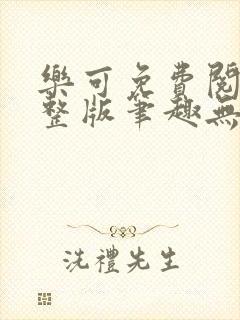 樂可免費閱
整版筆趣無
洗禮先生